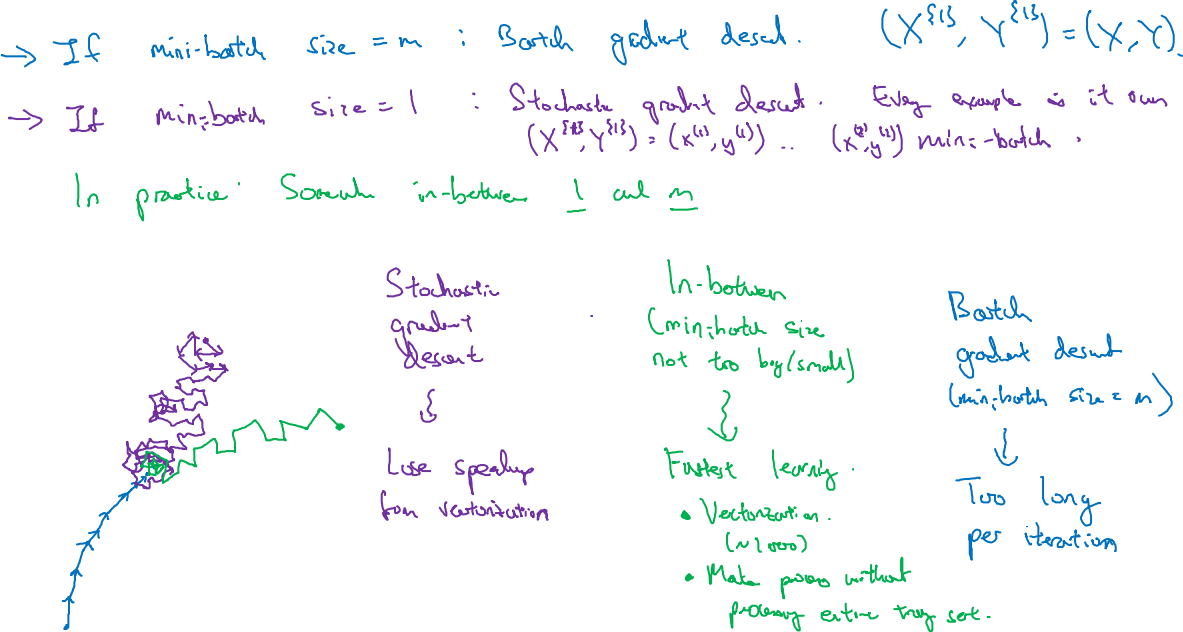 → If mini-batch size = m : Batch gradient descent. (X^{1}, Y^{1}) = (X, Y).
→ If mini-batch size = 1 : Stochastic gradient descent. Every example is it own
(X^{1}, Y^{1}) = (x^(1), y^(1)) .. (x^(2), y^(2)) mini-batch.
In practice: Somewhere in-between 1 and m
Stochastic
gradient
descent
Lose speedup
from vectorization
In-between
(mini-batch size
not too big/small)
Fastest learning.
• Vectorization.
(~1000)
• Make progress without
processing entire training set.
Batch
gradient descent
(mini-batch size = m)
Too long
per iteration